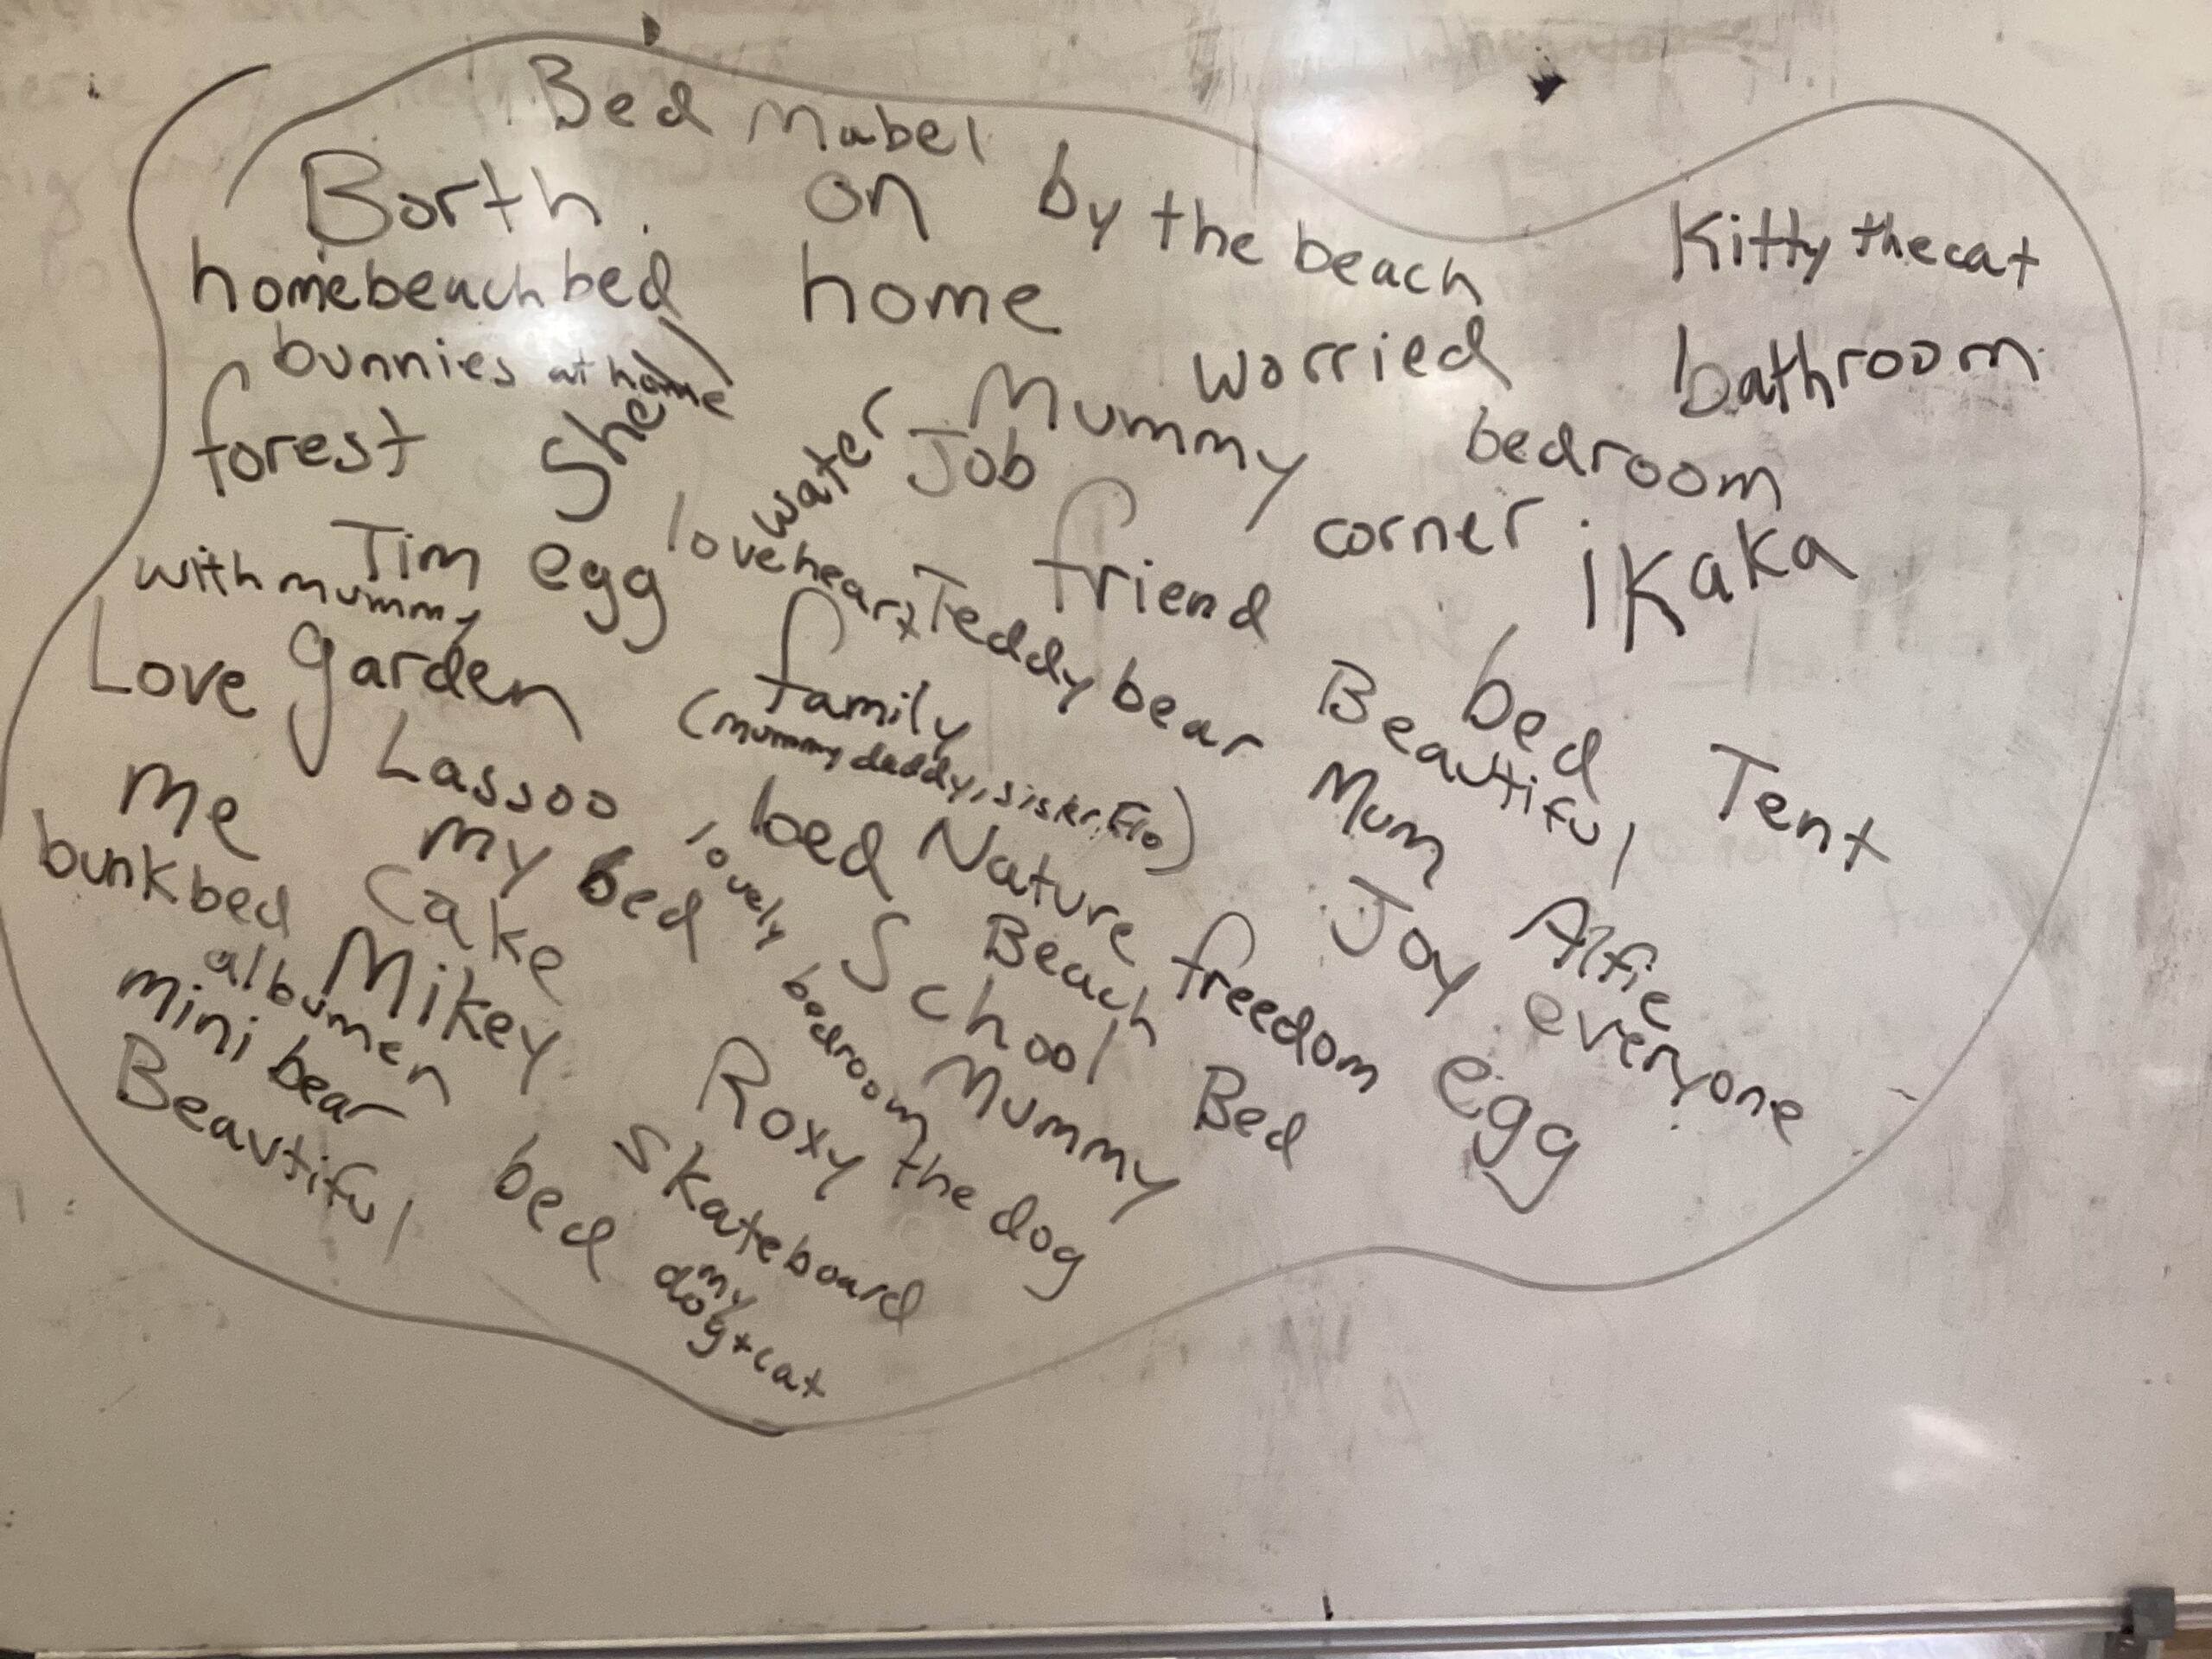 Bed Mabel
Borth
on
by the beach
Kitty the cat
home beach bed
home
worried
bathroom
bunnies at home
forest
Shell
water
Job
Mummy
bedroom
Tim
egg
love heart
friend
corner
IKaKa
with mummy
Love
garden
family
(mummy daddy, sister, Flo)
Teddy bear
Beautiful
bed
Tent
Me
Lassoo
bed
Nature
Mum
bunkbed
my bed
lovely bedroom
Cake
School
Beach
freedom
Joy
Alfie
albumen
Mikey
everyone
mini bear
Mummy
Bed
egg
Beautiful
Roxy the dog
bed
Skateboard
my
dog + cat